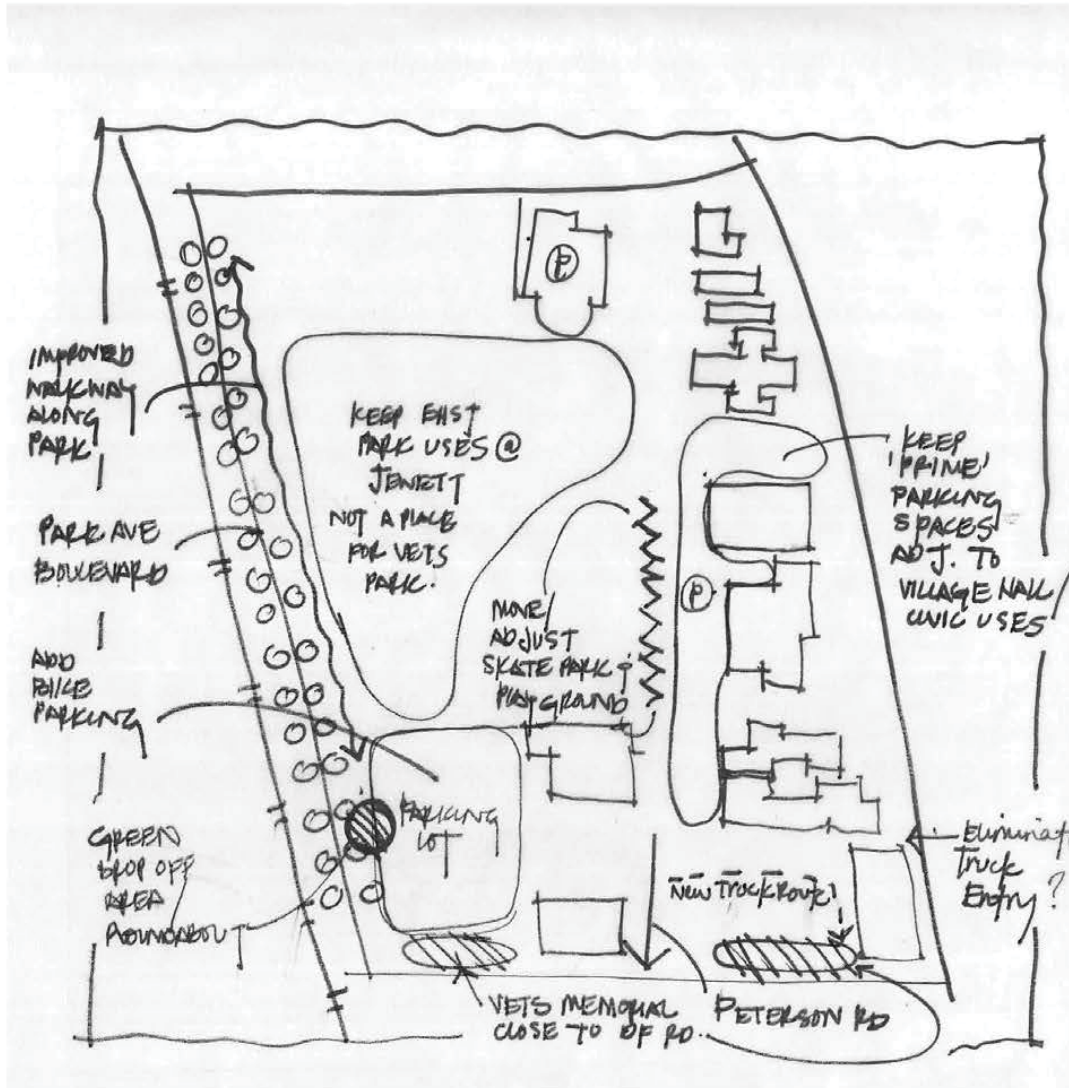 IMPROVED
WALKWAY
ALONG
PARK
PARK AVE
BOULEVARD
ADD
BIKE
PARKING
GREEN
DROP OFF
AREA
ROUNDABOUT
P
KEEP EXIST
PARK USES @
JEWETT
NOT A PLACE
FOR VETS
PARK!
MOVE/
ADJUST
SKATE PARK &
PLAYGROUND
PARKING
LOT
P
KEEP
'PRIME'
PARKING
SPACES
ADJ. TO
VILLAGE HALL/
CIVIC USES
Eliminate
Truck
Entry?
New Truck Route!
VETS MEMORIAL
CLOSE TO DF RD.
PETERSON RD